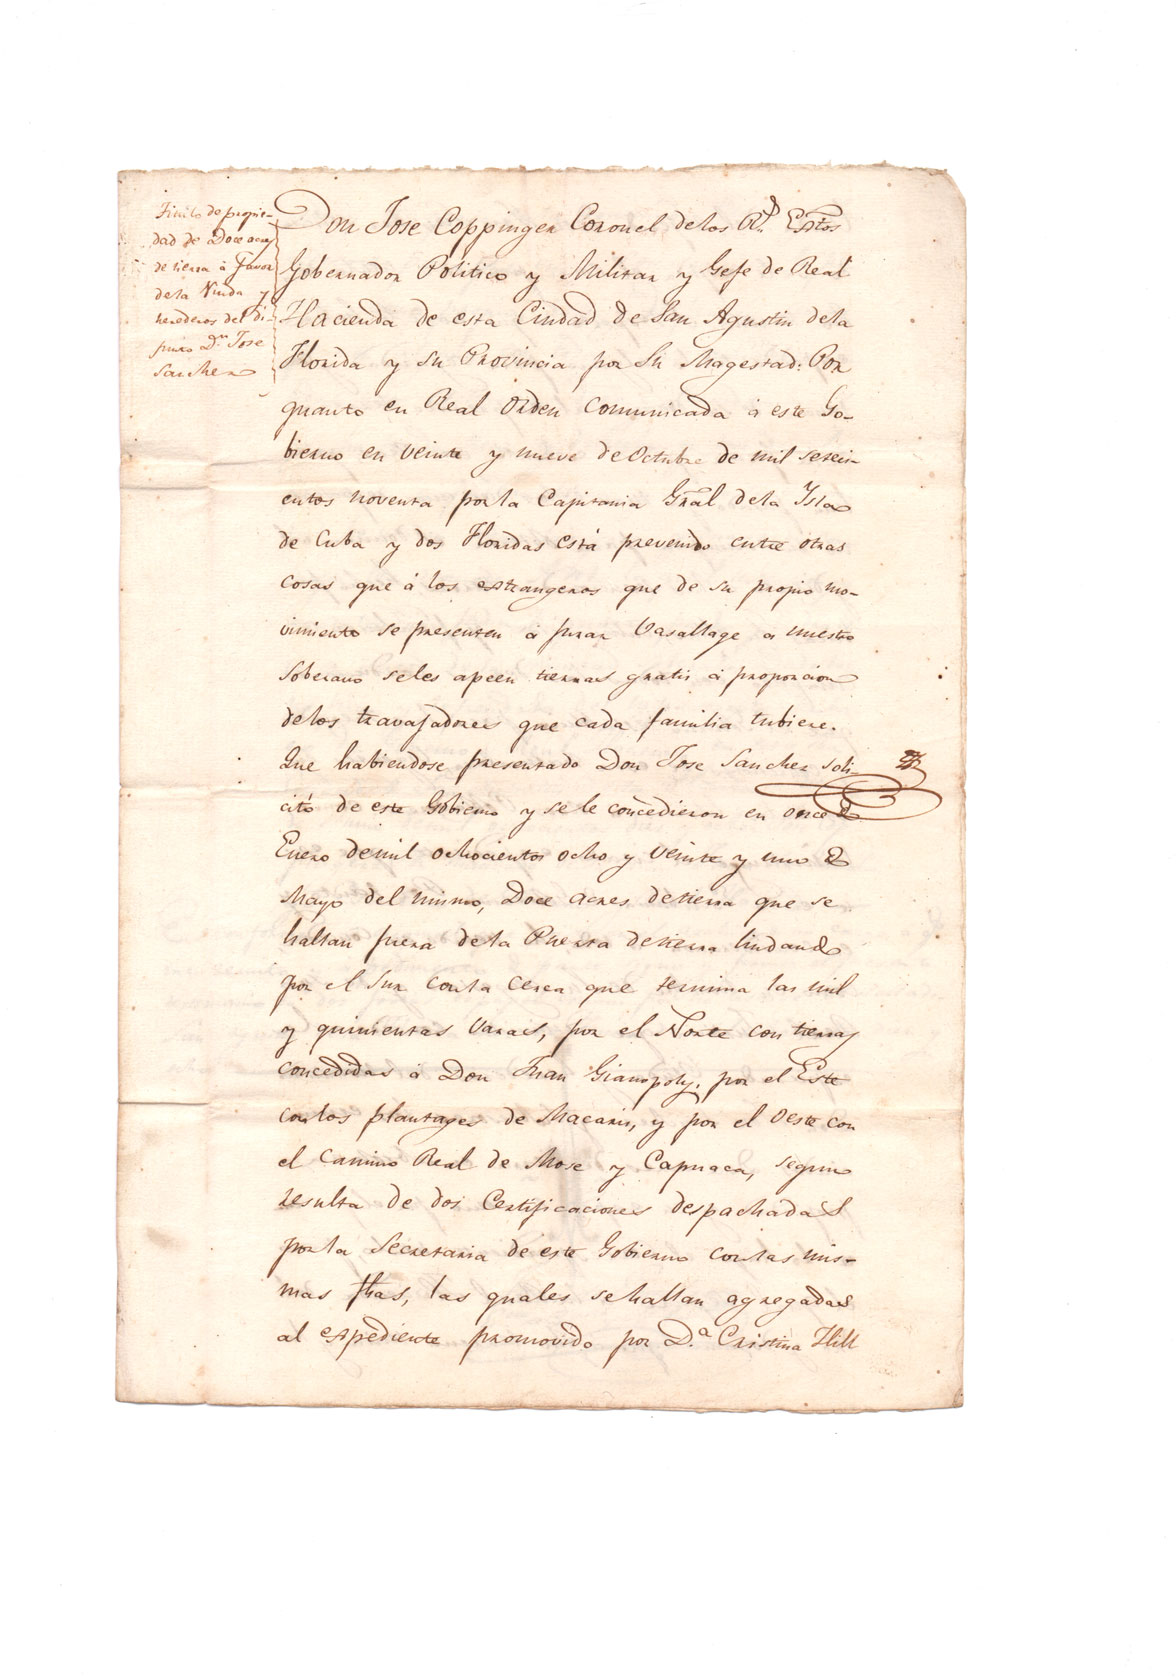 Titulo de propie-
dad de Doce acres
de tierra á favor
dela Viuda y
herederos del di-
funto Dn. Jose
Sanchez
Don Jose Coppinger Coronel delos Rs. Extos
Gobernador Politico y Militar y Gefe de Real
Hacienda de esta Ciudad de San Agustin dela
Florida y su Provincia por Su Magestad: Por
quanto en Real Orden comunicada á este Go-
bierno en veinte y nueve de Octubre de mil setecien-
entos noventa por la Capitania Gral dela Isla
de Cuba y dos Floridas está prevenido entre otras
cosas que á los estrangeros que de su propio mo-
vimiento se presenten á jurar Vasallage a nuestro
Soberano seles apeen tierras gratis á proporcion
delos travajadores que cada familia tubiere.
Que habiendose presentado Don Jose Sanchez soli-
citó de este Gobierno y se le concedieron en once de
Enero demil ochocientos ocho y veinte y uno de
Mayo del mismo, Doce acres detierra que se
hallan fuera dela Puerta detierra lindando
por el Sur conla cerca que termina las mil
y quinientas varas, por el Norte con tierras
concedidas á Don Juan Gianopoly, por el Este
conlos plantages de Macaris, y por el Oeste con
el Camino Real de Mose y Capuaca, segun
resulta de dos Certificaciones despachadas
porla Secretaria de este Gobierno conlas mis-
mas fhas, las quales sehallan agregadas
al espediente promovido por D.a Cristina Hill